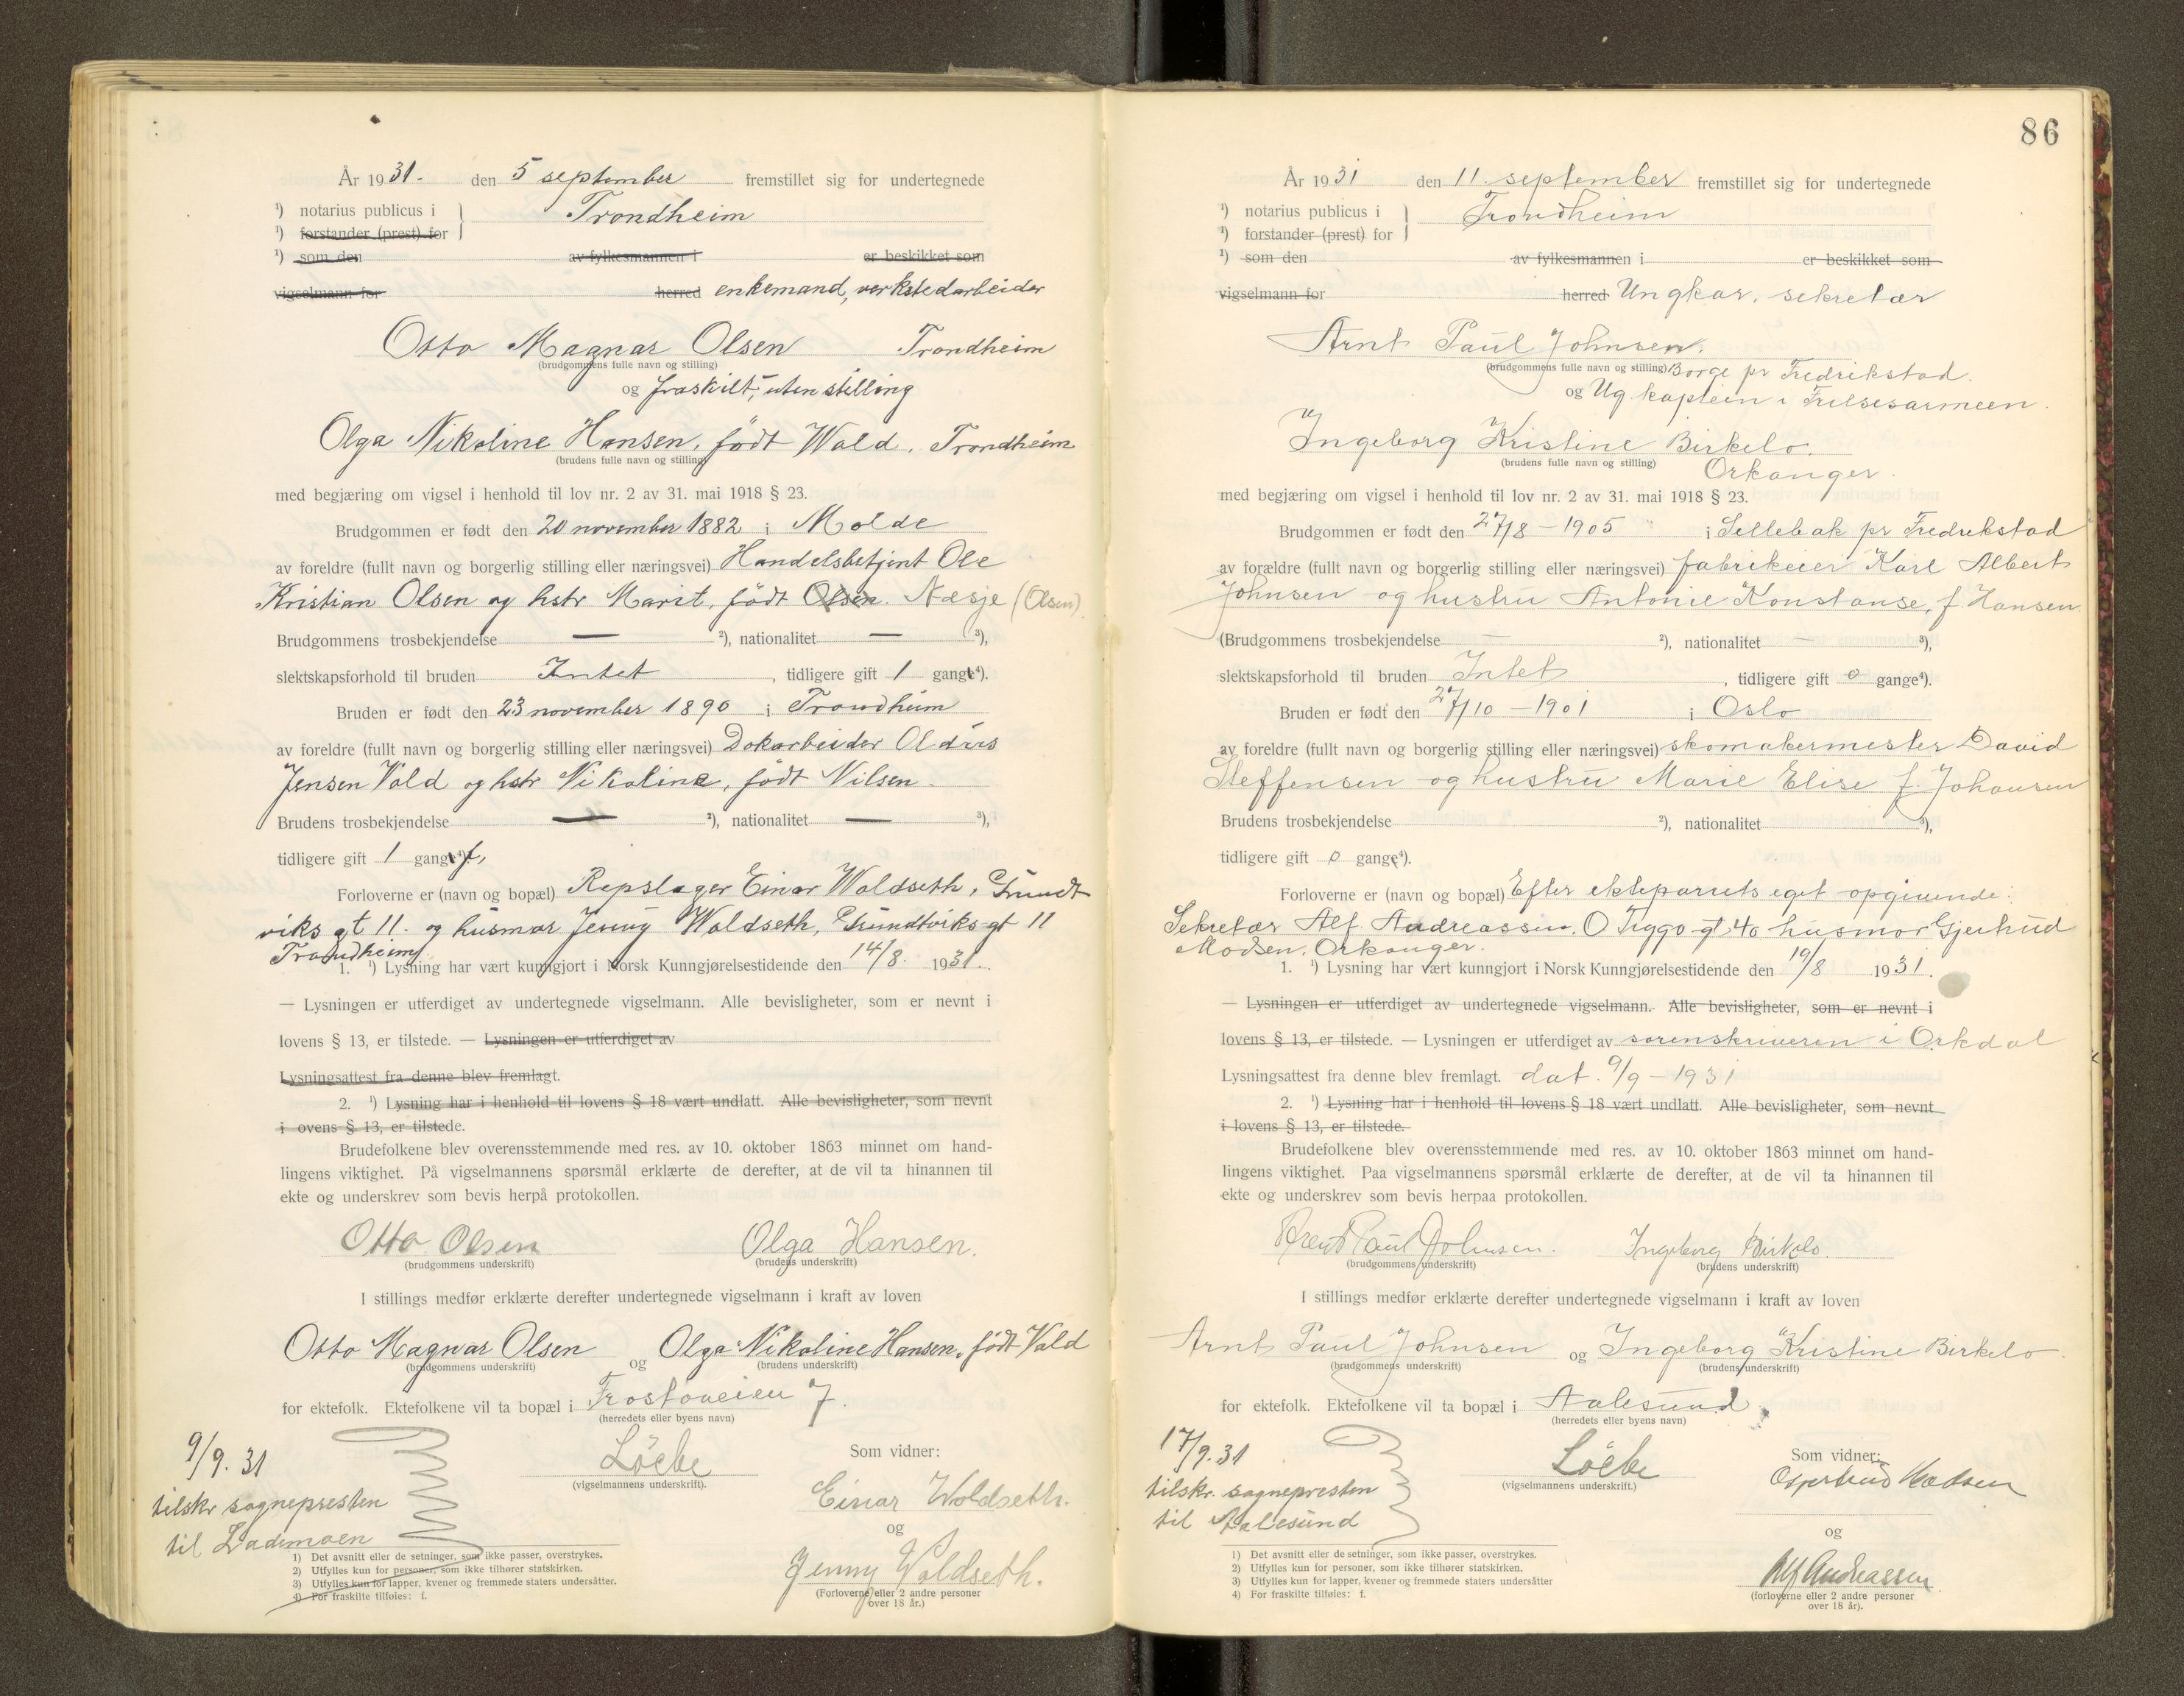 År 1931. den 5 september fremstillet sig for undertegnede
¹) notarius publicus i Trondheim
¹) forstander (prest) for
¹) som den av fylkesmannen i er beskikket som
vigselmann for herred enkemand, verkstedarbeider
Otto Magnar Olsen Trondheim
(brudgommens fulle navn og stilling)
og fraskilt, uten stilling
Olga Nikoline Hansen, født Wald, Trondheim
(brudens fulle navn og stilling)
med begjæring om vigsel i henhold til lov nr. 2 av 31. mai 1918 § 23.
Brudgommen er født den 20 november 1882 i Molde
av foreldre (fullt navn og borgerlig stilling eller næringsvei) Handelsbetjent Ole
Kristian Olsen og hstr Marit, født Olsen. Næsje (Olsen)
Brudgommens trosbekjendelse — ²), nationalitet — ³),
slektskapsforhold til bruden Intet, tidligere gift 1 gange⁴).
Bruden er født den 23 november 1890 i Trondheim
av foreldre (fullt navn og borgerlig stilling eller næringsvei) Dokarbeider
Jensen Vald og hstr Nikoline, født Nilsen.
Brudens trosbekjendelse — ²), nationalitet — ³),
tidligere gift 1 gange⁴) f,
Forloverne er (navn og bopæl) Repslager Einar Woldseth, Grundt
viks gt 11. og husmor Jenny Woldseth, Grundtviks gt 11
Trondheim
1. ¹) Lysning har vært kunngjort i Norsk Kunngjørelsestidende den 14/8. 1931.
— Lysningen er utferdiget av undertegnede vigselmann. Alle bevisligheter, som er nevnt i
lovens § 13, er tilstede. — Lysningen er utferdiget av
Lysningsattest fra denne blev fremlagt.
2. ¹) Lysning har i henhold til lovens § 18 vært undlatt. Alle bevisligheter, som nevnt
i ovens § 13, er tilstede.
Brudefolkene blev overensstemmende med res. av 10. oktober 1863 minnet om hand-
lingens viktighet. På vigselmannens spørsmål erklærte de derefter, at de vil ta hinannen til
ekte og underskrev som bevis herpå protokollen.
Otto Olsen Olga Hansen.
(brudgommens underskrift) (brudens underskrift)
I stillings medfør erklærte derefter undertegnede vigselmann i kraft av loven
Otto Magnar Olsen og Olga Nikoline Hansen, født Vald
(brudgommens underskrift) (brudens underskrift)
for ektefolk. Ektefolkene vil ta bopæl i Frostaveien 7.
(herredets eller byens navn)
9/9. 31
tilskr sognepresten
til Lademoen
Löebe
(vigselmannens underskrift).
Som vidner:
Einar Woldseth.
og
Jenny Woldseth.
(Forloverne eller 2 andre personer
over 18 år.)
1) Det avsnitt eller de setninger, som ikke passer, overstrykes.
2) Utfylles kun for personer, som ikke tilhører statskirken.
3) Utfylles kun for lapper, kvener og fremmede staters undersåtter.
4) For fraskilte tilføies: f.
86
År 1931 den 11. september fremstillet sig for undertegnede
¹) notarius publicus i Trondheim
¹) forstander (prest) for
¹) som den av fylkesmannen i er beskikket som
vigselmann for herred Ungkar, sekretær
Arnt Paul Johnsen.
(brudgommens fulle navn og stilling) Borge pr Fredrikstad.
og Ug. kaptein i Frelsesarmeen.
Ingeborg Kristine Birkelo.
(brudens fulle navn og stilling) Orkanger.
med begjæring om vigsel i henhold til lov nr. 2 av 31. mai 1918 § 23.
Brudgommen er født den 27/8 – 1905 i Sellebak pr Fredrikstad
av forældre (fullt navn og borgerlig stilling eller næringsvei) fabrikeier Karl Albert
Johnsen og hustru Antonie Konstanse, f. Hansen
(Brudgommens trosbekjendelse — ²), nationalitet — ³),
slektskapsforhold til bruden Intet, tidligere gift 0 gange⁴).
Bruden er født den 27/10 – 1901 i Oslo
av foreldre (fullt navn og borgerlig stilling eller næringsvei) skomakermester David
Steffensen og hustru Marie Elise f. Johansen
Brudens trosbekjendelse ²), nationalitet ³),
tidligere gift 0 gange⁴).
Forloverne er (navn og bopæl) Efter ekteparrets eget opgivende:
Sekretær Alf Andreassen, O Tryggo gt 40 husmor Gjertrud
Madsen, Orkanger.
1. ¹) Lysning har vært kunngjort i Norsk Kunngjørelsestidende den 19/8 1931.
— Lysningen er utferdiget av undertegnede vigselmann. Alle bevisligheter, som er nevnt i
lovens § 13, er tilstede. — Lysningen er utferdiget av sorenskriveren i Orkdal
Lysningsattest fra denne blev fremlagt. dat. 9/9 – 1931
2. ¹) Lysning har i henhold til lovens § 18 vært undlatt. Alle bevisligheter, som nevnt
i lovens § 13, er tilstede.
Brudefolkene blev overensstemmende med res. av 10. oktober 1863 minnet om hand-
lingens viktighet. Paa vigselmannens spørsmål erklærte de derefter, at de vil ta hinannen til
ekte og underskrev som bevis herpaa protokollen.
Arent Paul Johnsen. Ingeborg Birkelo.
(brudgommens underskrift) (brudens underskrift)
I stillings medfør erklærte derefter undertegnede vigselmann i kraft av loven
Arnt Paul Johnsen og Ingeborg Kristine Birkelo.
(brudgommens underskrift) (brudens underskrift)
for ektefolk. Ektefolkene vil ta bopæl i Aalesund
(herredets eller byens navn)
17/9. 31
tilskr. sognepresten
til Aalesund
Löebe
(vigselmannens underskrift.)
Som vidner:
Gjertrud Madsen
og
Alf Andreassen
(forloverne eller 2 andre personer
over 18 år).
1) Det avsnitt eller de setninger, som ikke passer, overstrykes.
2) Utfylles kun for personer, som ikke tilhører statskirken.
3) Utfylles kun for lapper, kvener og fremmede staters undersåtter
4) For fraskilte tilføies: f.